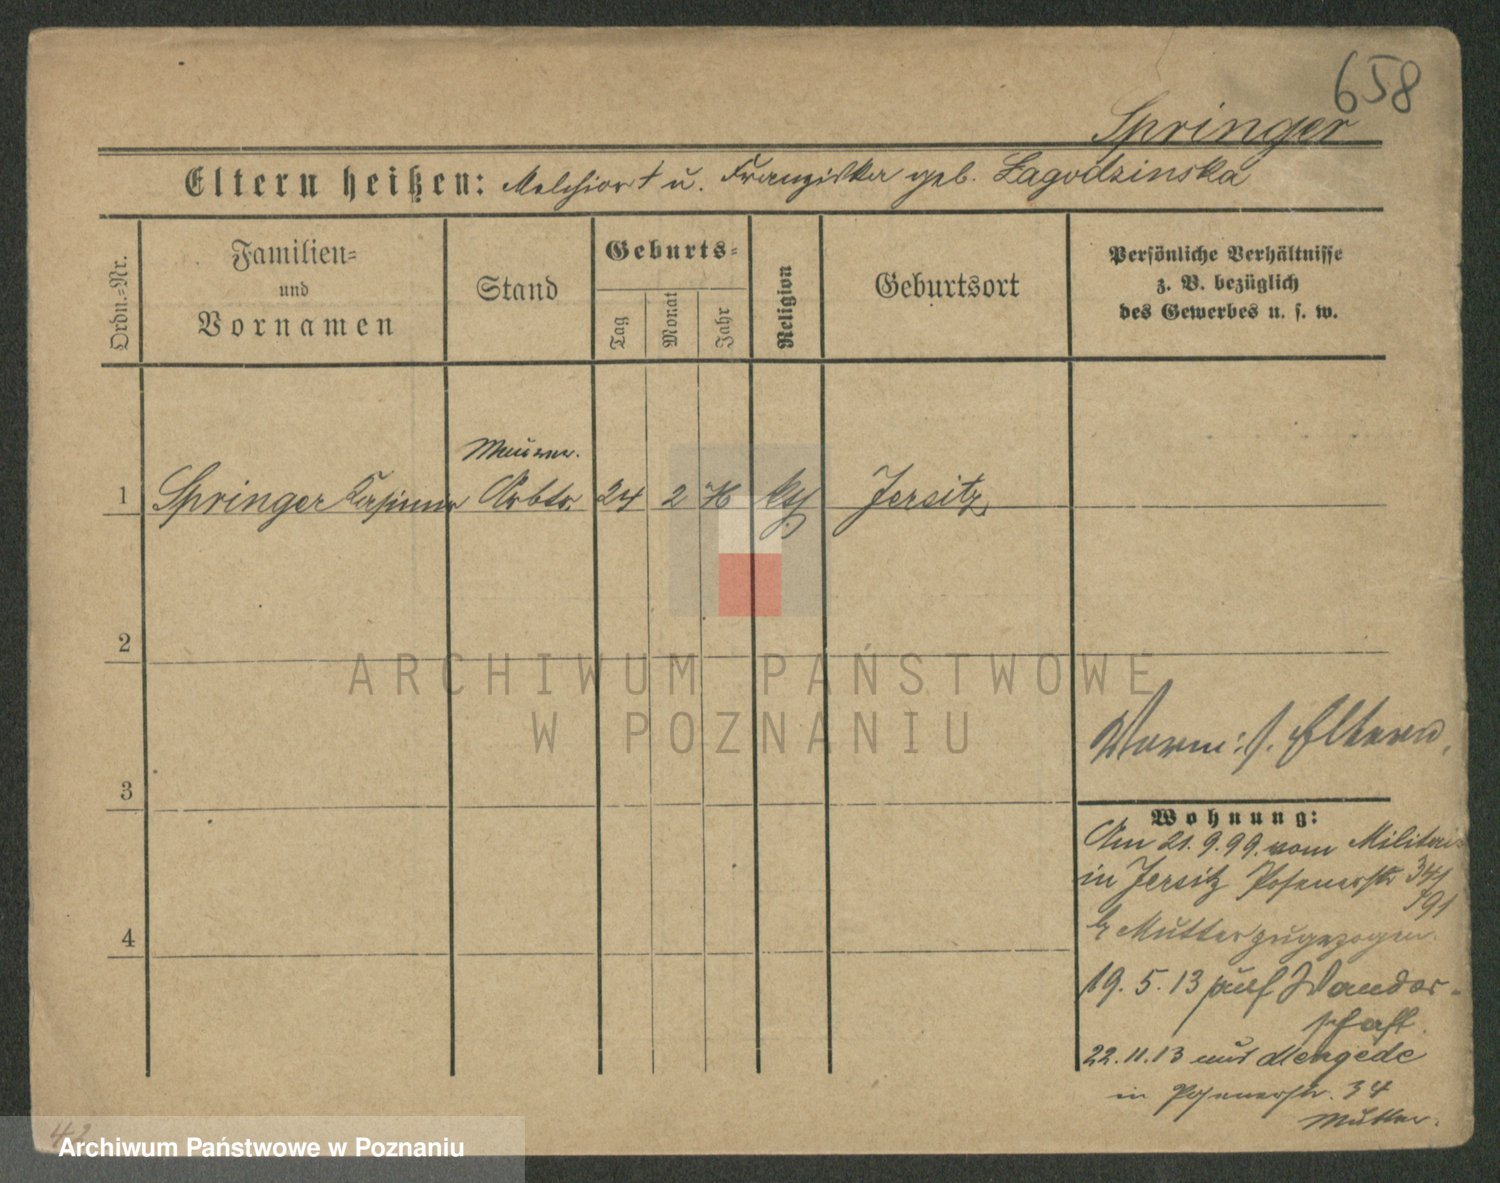 658
Springer
Eltern heißen: Melchior † u. Franziska geb. Lagodzinska
Ordn.-Nr.
Familien-
und
Vornamen
Stand
Geburts-
Tag
Monat
Jahr
Religion
Geburtsort
Persönliche Verhältnisse
z. B. bezüglich
des Gewerbes u. s. w.
Maurer.
1 Springer Kasimir Arbtr. 24 2 76 kth Jersitz
2
ARCHIWUM PAŃSTWOWE
W POZNANIU
Vorm: s. Eltern
3
Wohnung:
Am 21.9.99. vom Militair
in Jersitz Posenerstr 34
b. Mutter zugezogen.
4
19. 5. 13 auf Wander-
schaft.
22.11.13 aus Mengede
in Posenerstr. 34
Mutter.
42
Archiwum Państwowe w Poznaniu